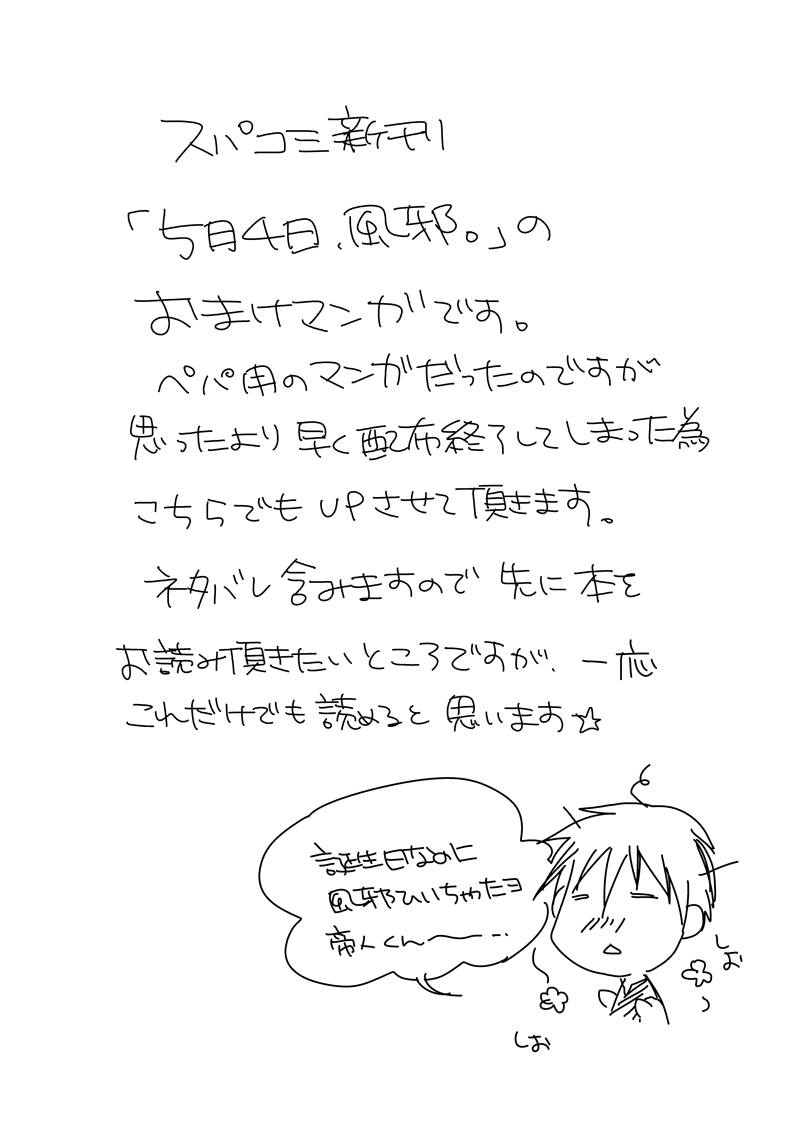 スパコミ新刊
「5月4日、風邪。」の
おまけマンガです。
ペパ用のマンガだったのですが
思ったより早く配布終了してしまった為
こちらでもUPさせて頂きます。
ネタバレ含みますので先に本を
お読み頂きたいところですが、一応
これだけでも読めると思います☆
誕生日なのに
風邪ひいちゃったヨ
帝人くん〜〜…
しお
しお